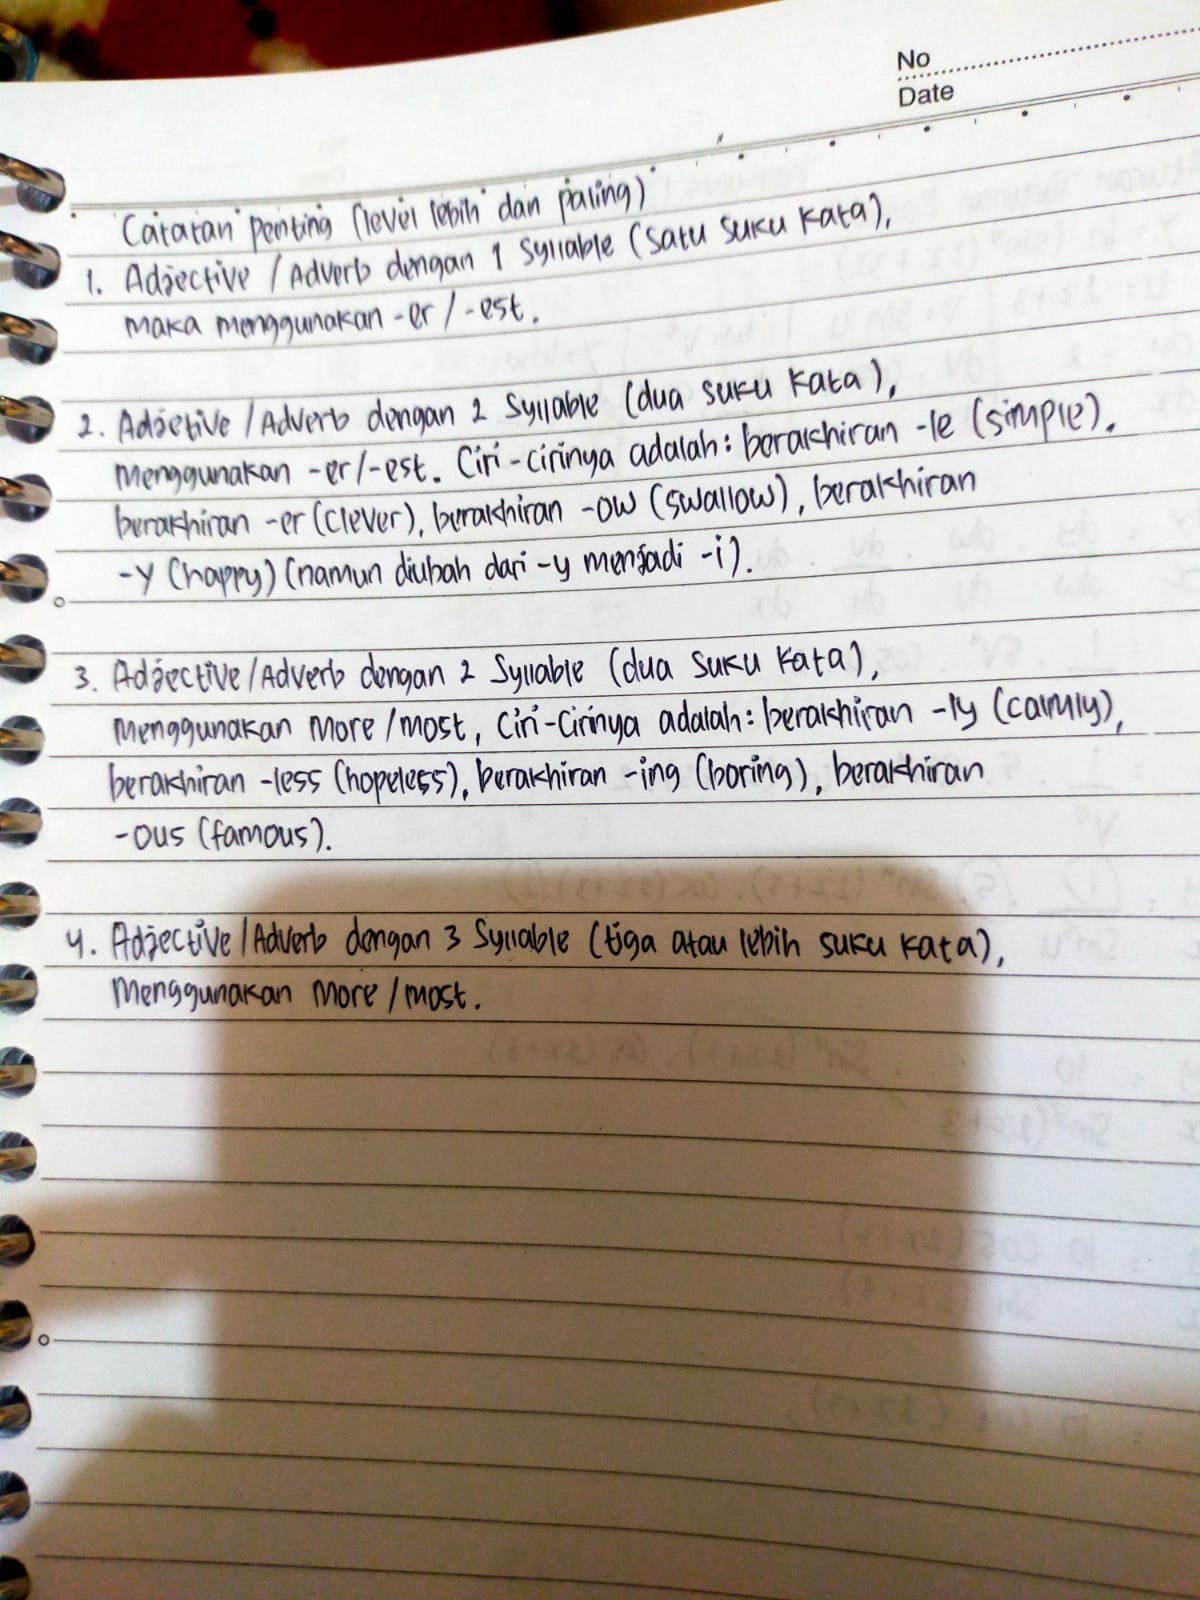 No
Date
Catatan penting (level lebih dan paling)
1. Adjective / Adverb dengan 1 Syllable (satu suku kata),
maka menggunakan -er / -est.
2. Adjective / Adverb dengan 2 Syllable (dua suku kata),
Menggunakan -er/-est. Ciri-cirinya adalah: berakhiran -le (simple),
berakhiran -er (clever), berakhiran -ow (swallow), berakhiran
-y (happy) (namun diubah dari -y menjadi -i).
3. Adjective/Adverb dengan 2 Syllable (dua suku kata),
Menggunakan More/most, Ciri-Cirinya adalah: berakhiran -ly (calmly),
berakhiran -less (hopeless), berakhiran -ing (boring), berakhiran
-ous (famous).
4. Adjective/Adverb dengan 3 Syllable (tiga atau lebih suku kata),
Menggunakan More/most.